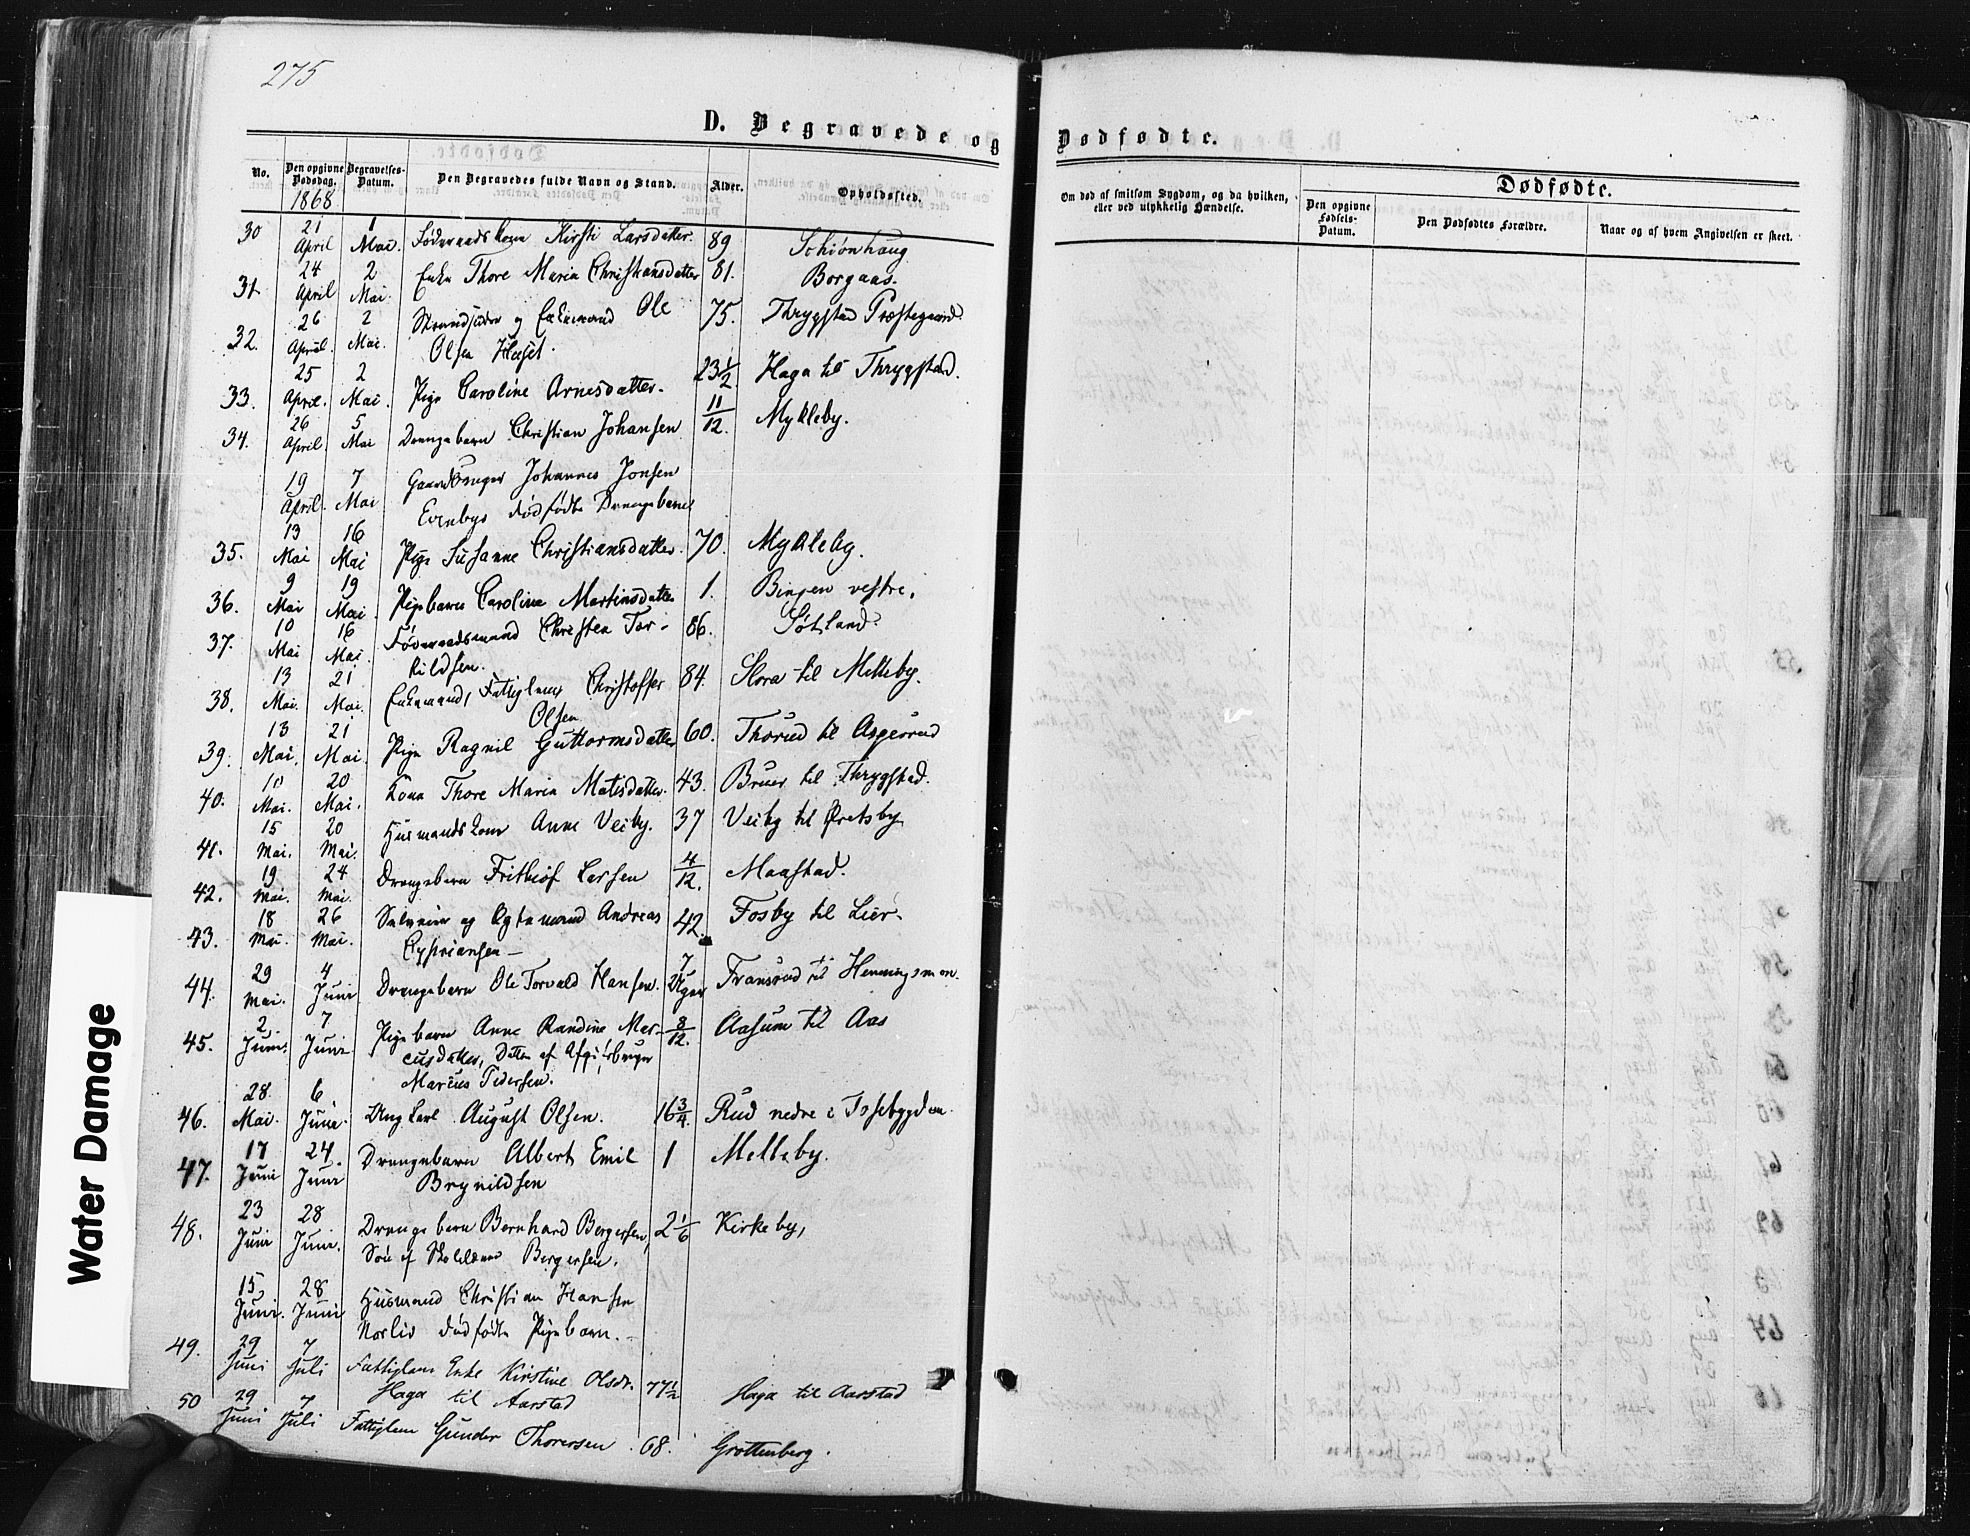 275
D. Begravede og
Dødfødte.
No.
Den opgivne Dødsdag.
Begravelses-Datum.
Den Begravedes fulde Navn og Stand.
Alder.
Opholdssted.
Om død af smitsom Sygdom, og da hvilken,
eller ved ulykkelig Hændelse.
Dødfødte.
Den opgivne Fødsels-Datum.
Den Dødfødtes Forældre.
Naar og af hvem Angivelsen er skeet.
1868
30 21 April 1 Mai. Føderaadskone Kirsti Larsdatter. 89 Schiønhaug
31 24 April 2 Mai. Enke Thore Maria Christiansdatter 81. Borgaas.
32. 26 April. 2 Mai. og Enkemand Ole 75. Thrygstad Præstegaard.
Olsen
33. 25 April. 2 Mai. Pige Caroline Arnesdatter. 23 1/2 Haga til Thrygstad.
34. 26 April. 5 Mai Drengebarn Christian Johansen 11/12. Mykleby.
19 April. 7 Mai Gaardbruger Johannes Jonsen
Evenbys dødfødte Drengebarn
35. 13 Mai 16 Mai Pige Susanne Christiansdatter. 70. Mykleby.
36. 9 Mai 19 Mai. Pigebarn Caroline Martinsdatter 1. Bingen vestre.
37. 10 Mai 16 Mai. Føderaadsmand Christen Tor- 86. Søtland.
kildsen.
38. 13 Mai. 21 Mai. Enkemand, Fattiglem Christoffer 84. Slora til Melleby.
Olsen
39. 13 Mai. 21 Mai. Pige Ragnil Guttormsdatter 60. Thorud til Asgerud
40. 10 Mai. 20 Mai. Kone Thore Maria Matisdatter. 43. Bruer til Thrygstad.
41. 15 Mai. 20 Mai. Husmandskone Anne Veiby. 37 Veiby til Øretsby
42. 19 Mai. 24 Mai. Drengebarn Frithiof Larsen 4/12. Maastad.
43. 18 Mai. 26 Mai. og Ægtemand Andreas 42. Fosby til Lier.
Cypriansen –
44. 29 Mai. 4 Juni Drengebarn Ole Torvald Hansen. 7 Uger Fransrud til Henningsmoen.
45. 2 Juni. 7 Juni Pigebarn Anne Randine Mar- 8/12. Aasum til Aas
cusdatter, Datter af
Marcus Pedersen.
46. 28 Mai. 6 Juni. Ungkarl August Olsen. 16 3/4. Rud nedre i Tossebygden.
47. 17 Juni 24. Juni Drengebarn Albert Emil 1 Melleby.
Brynildsen
48. 23 Juni 28 Juni. Drengebarn Bernhard Bergersen, 2 1/6 Kirkeby,
Søn af Bergersen.
15 Juni. 28 Juni Husmand Christian Hansen
Norlis dødfødte Pigebarn.
49. 29 Juni 7 Juli Fattiglem Enke Kirstine Olsdr. 77 1/2 Haga til Aarstad
Haga til Aarstad
50 29 Juni 7 Juli Fattiglem Gunder Thorersen. 68. Grottenberg.
Water Damage